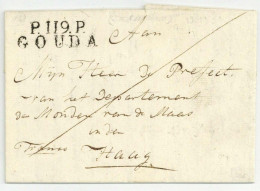 P.119.P.
GOUDA
Aan
Mijn Heer de Prefect
van het Departement
der Monden van de Maas
in den
Haag